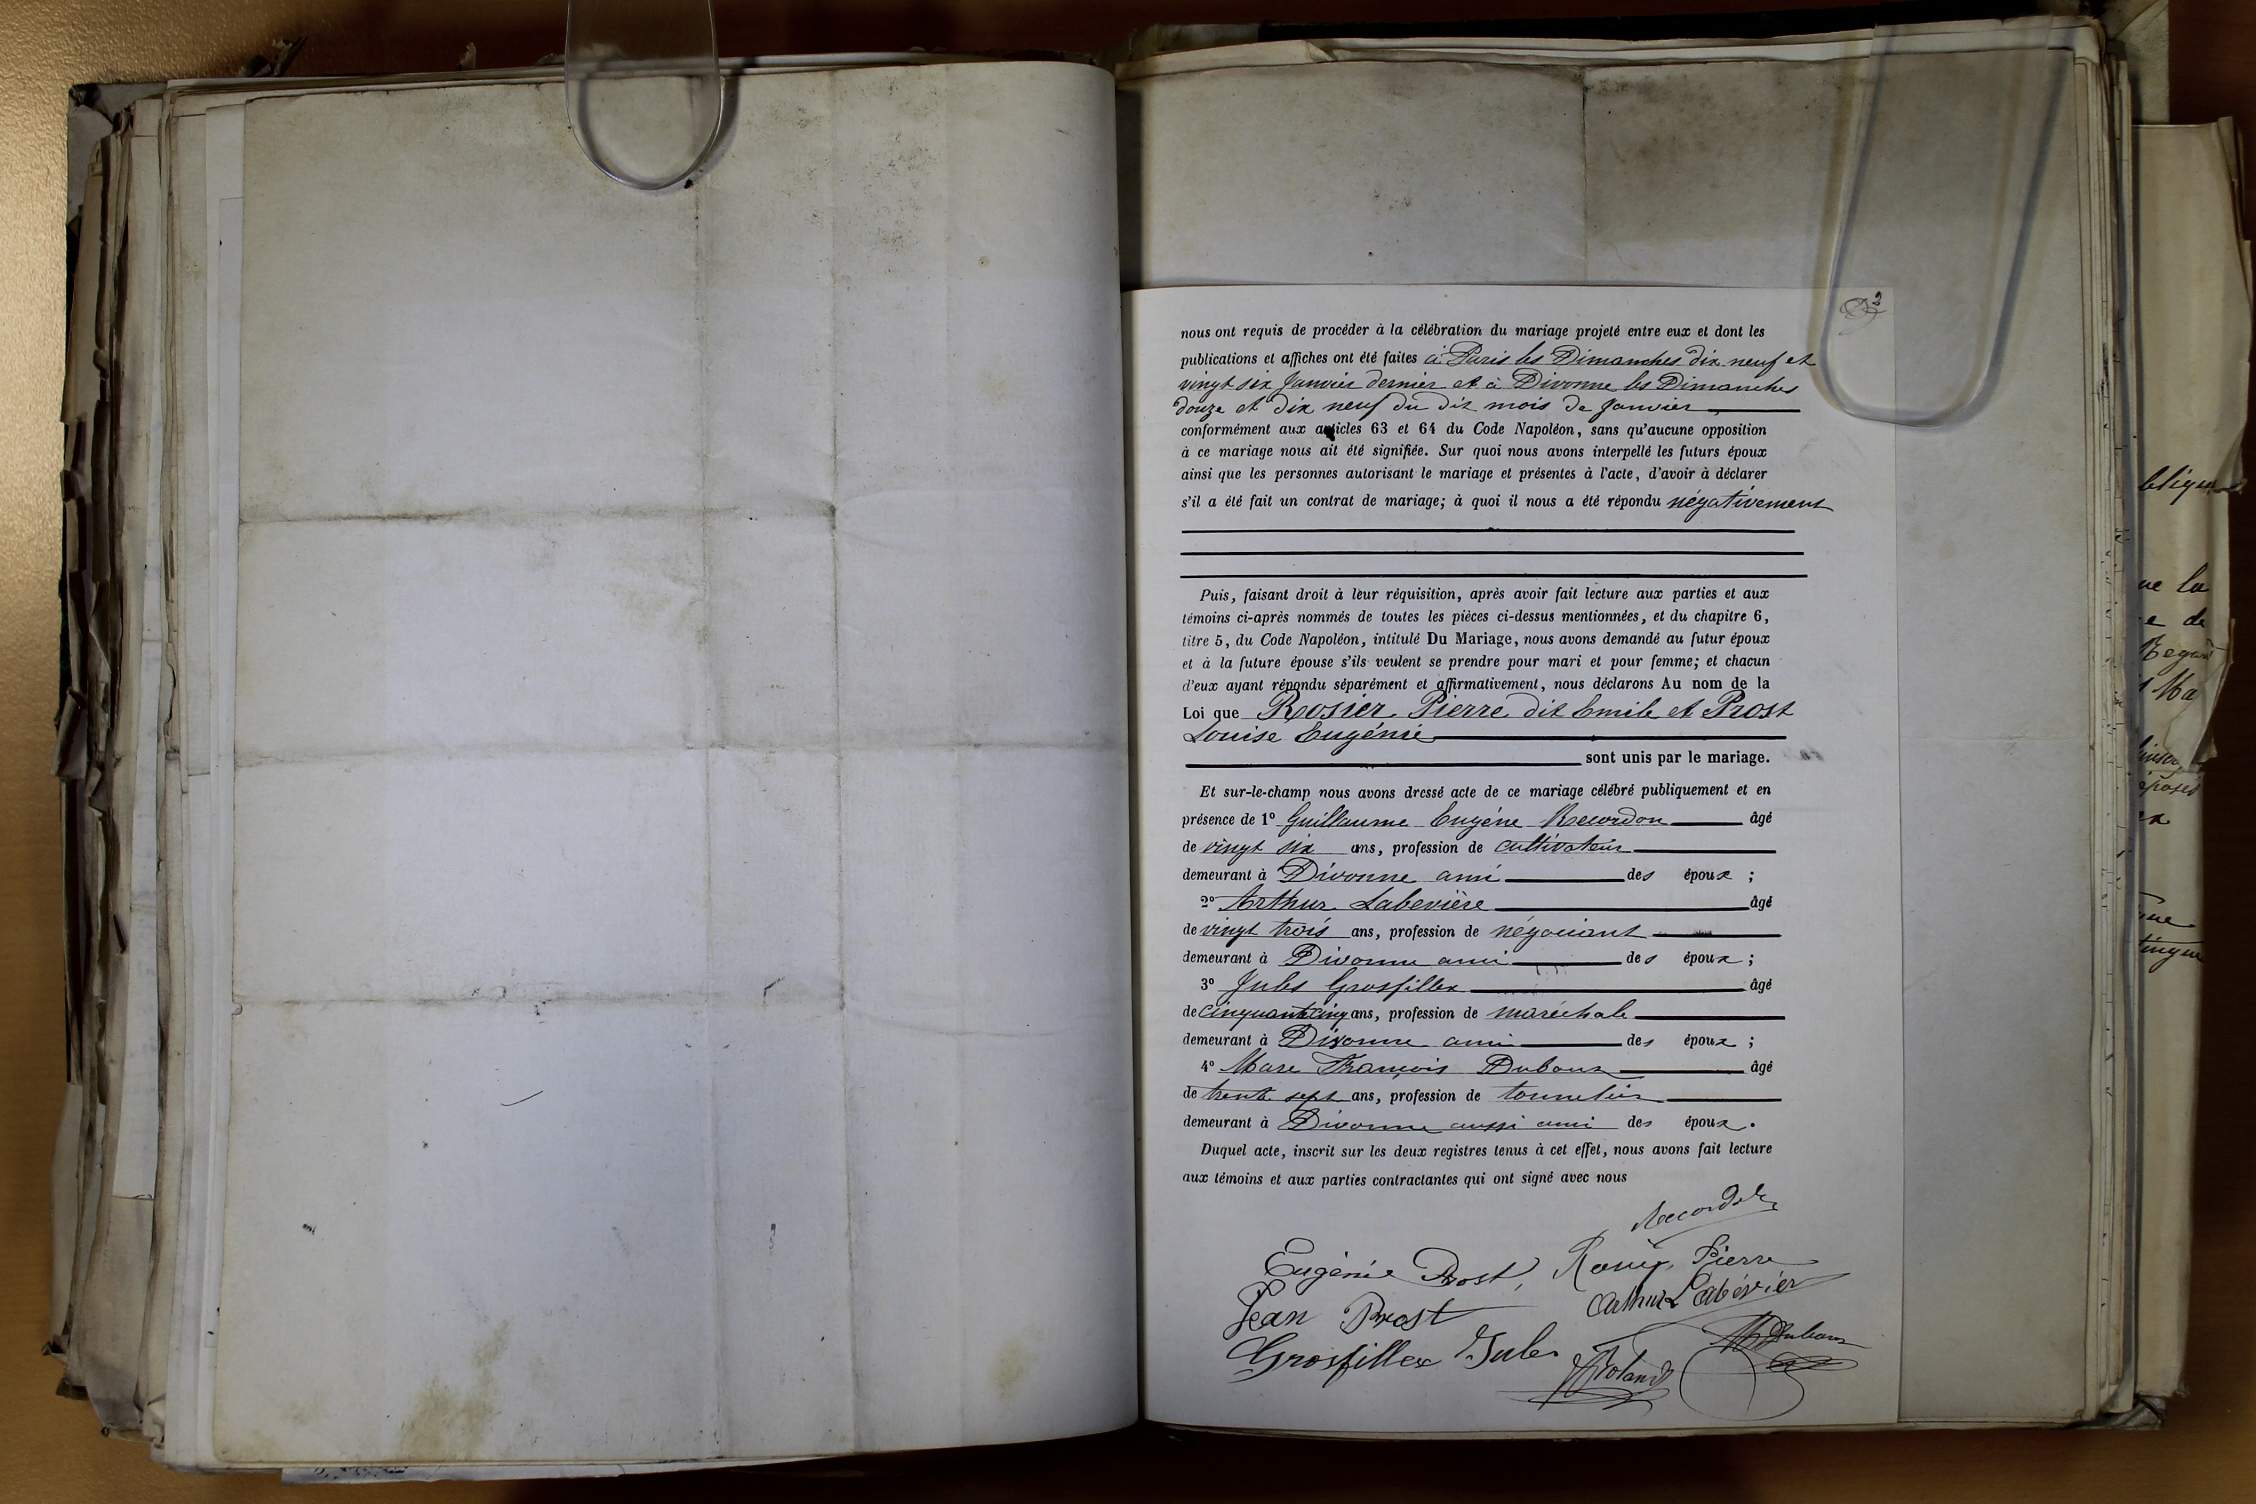 2
nous ont requis de procéder à la célébration du mariage projeté entre eux et dont les
publications et affiches ont été faites à Paris les Dimanches dix neuf et
vingt six Janvier dernier et à Divonne les Dimanches
douze et dix neuf du dit mois de Janvier
conformément aux articles 63 et 64 du Code Napoléon, sans qu'aucune opposition
à ce mariage nous ait été signifiée. Sur quoi nous avons interpellé les futurs époux
ainsi que les personnes autorisant le mariage et présentes à l'acte, d'avoir à déclarer
s'il a été fait un contrat de mariage; à quoi il nous a été répondu négativement
Puis, faisant droit à leur réquisition, après avoir fait lecture aux parties et aux
témoins ci-après nommés de toutes les pièces ci-dessus mentionnées, et du chapitre 6,
titre 5, du Code Napoléon, intitulé Du Mariage, nous avons demandé au futur époux
et à la future épouse s'ils veulent se prendre pour mari et pour femme; et chacun
d'eux ayant répondu séparément et affirmativement, nous déclarons Au nom de la
Loi que Rosier Pierre dit Emile et Prost
Louise Eugénie
sont unis par le mariage.
Et sur-le-champ nous avons dressé acte de ce mariage célébré publiquement et en
présence de 1° Guillaume Eugène Recordon âgé
de vingt six ans, profession de cultivateur
demeurant à Divonne ami des époux ;
2° Arthur Labevière âgé
de vingt trois ans, profession de négociant
demeurant à Divonne ami des époux ;
3° Jules Grosfillex âgé
de cinquante cinq ans, profession de maréchale
demeurant à Divonne ami des époux ;
4° Marc François Duboux âgé
de trente sept ans, profession de tonnelier
demeurant à Divonne aussi ami des époux.
Duquel acte, inscrit sur les deux registres tenus à cet effet, nous avons fait lecture
aux témoins et aux parties contractantes qui ont signé avec nous
Recordon
Eugénie Prost, Rosier Pierre
Jean Prost Arthur Labévièr
Grosfillex Jules Roland Duboux
ue la
e de
époses